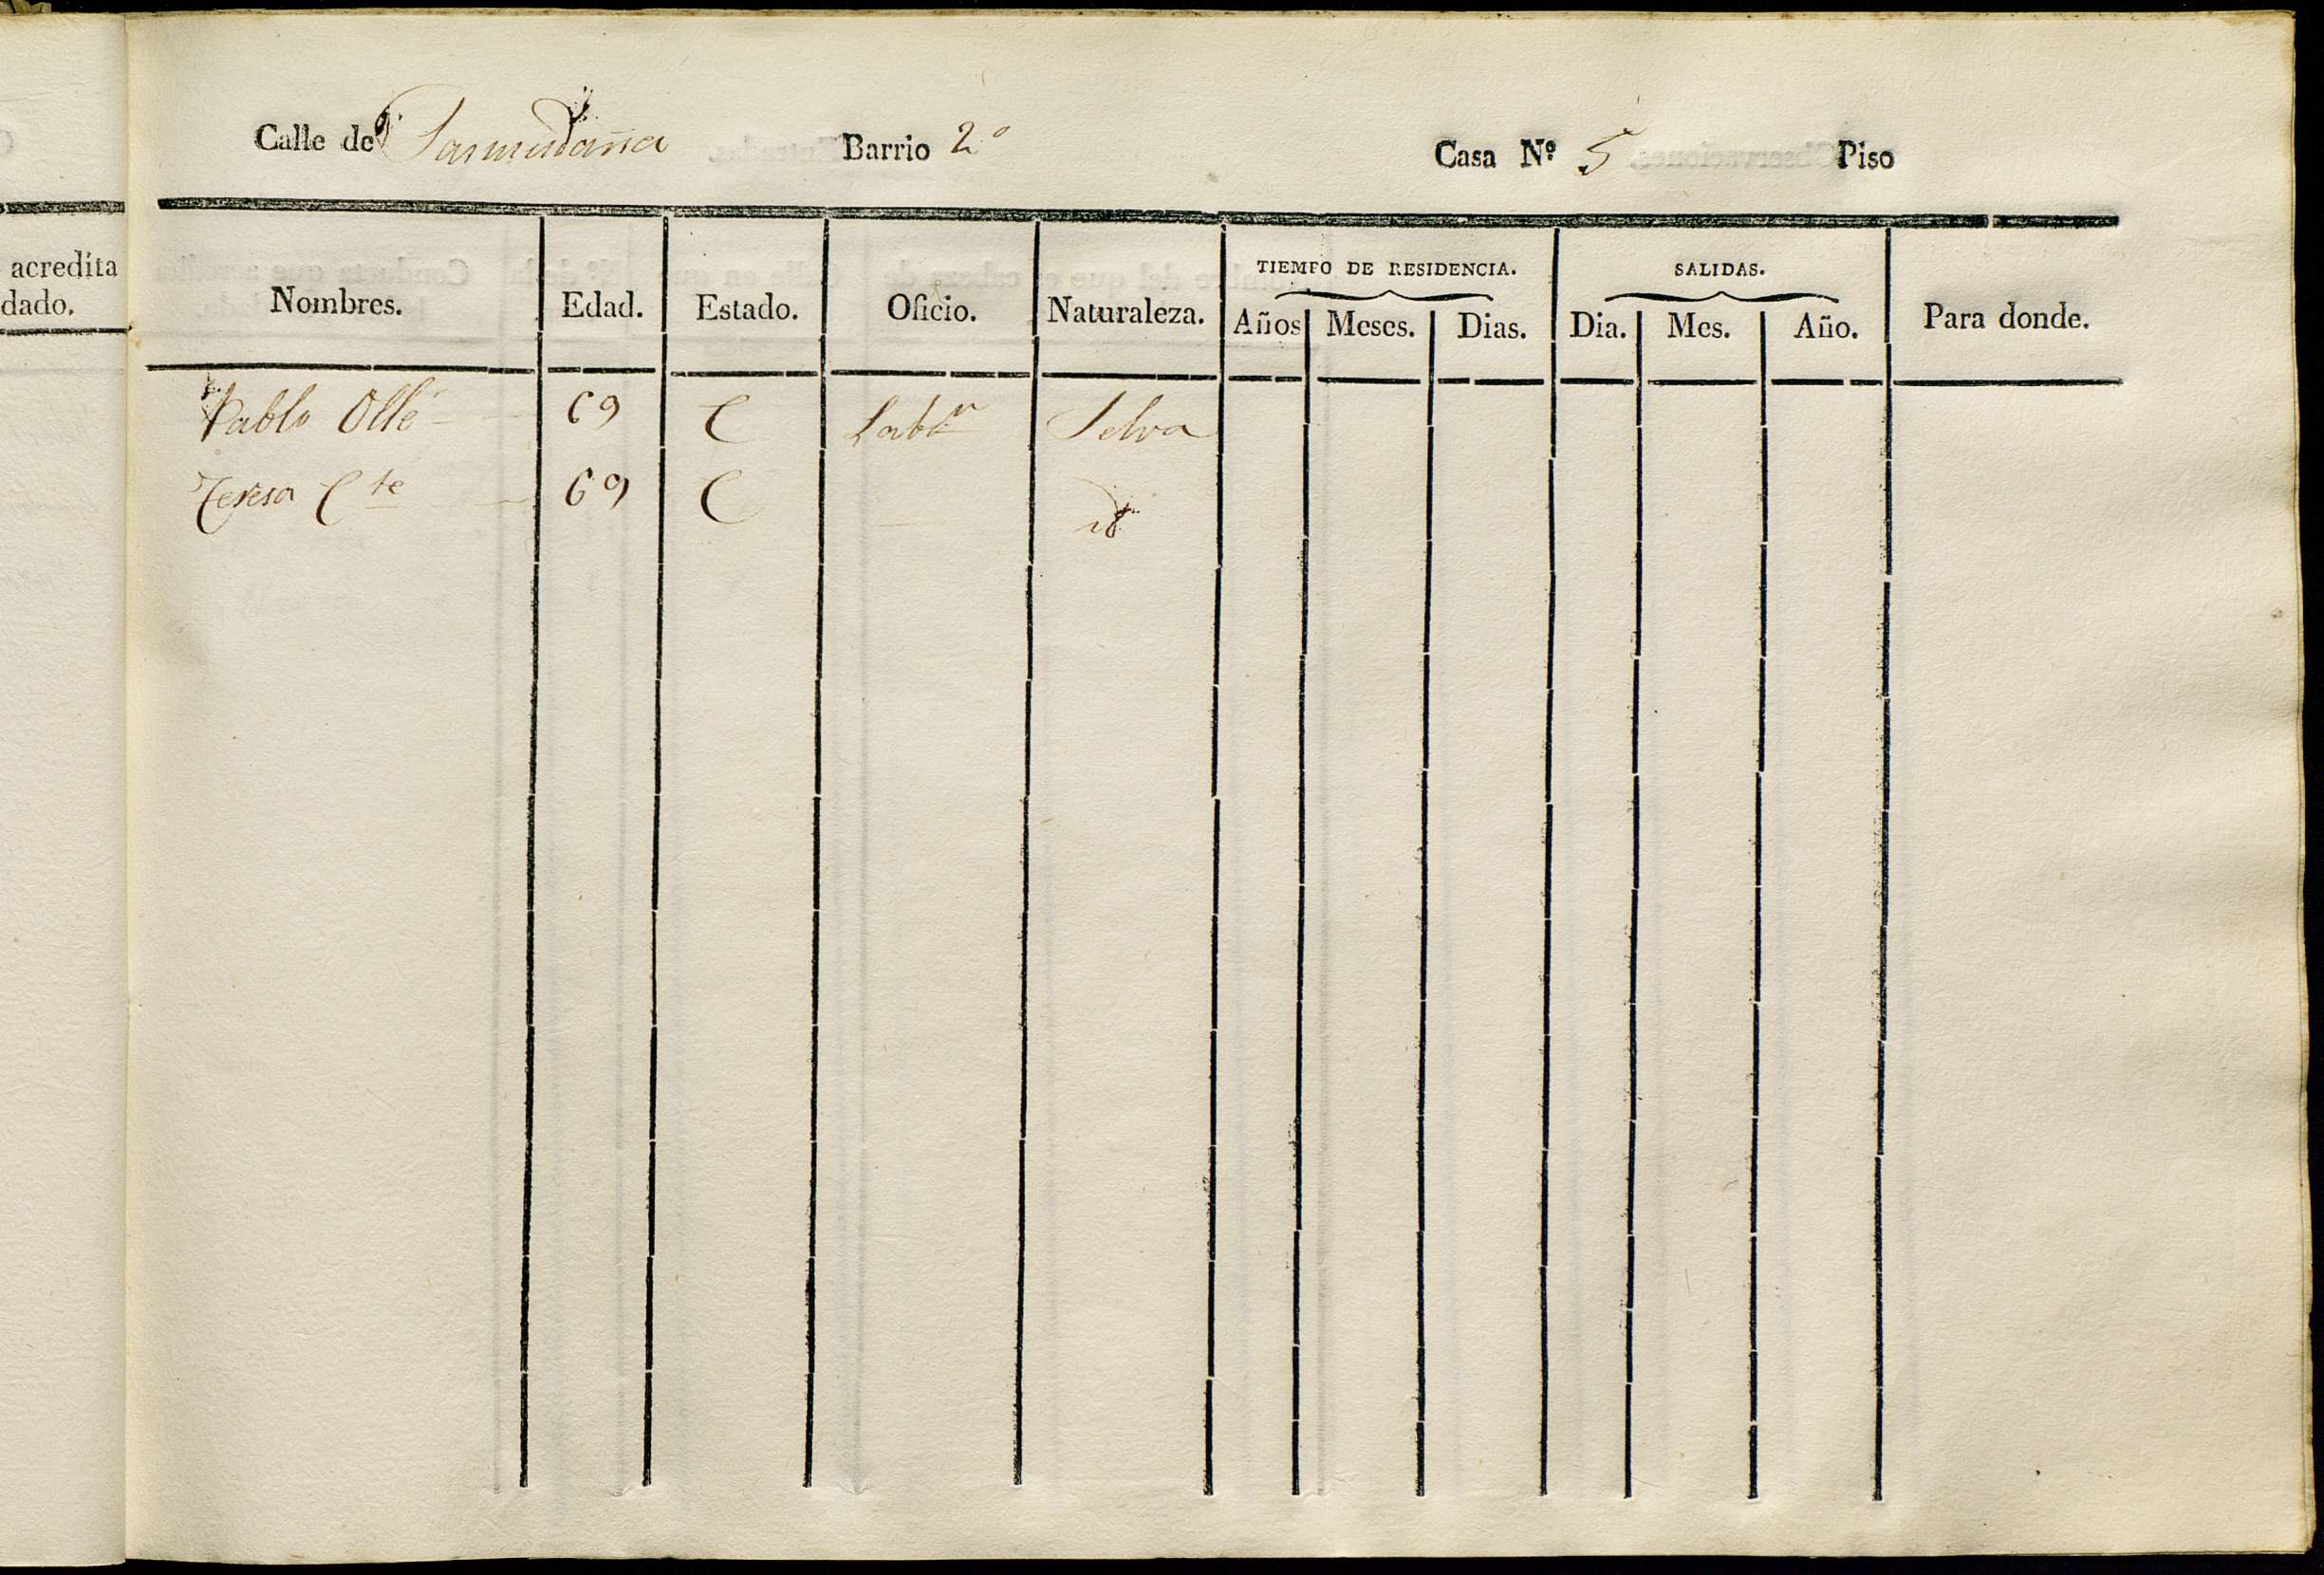 acredita
dado.
Calle de Sarmudaña Barrio 2º Casa Nº 5 Piso
TIEMPO DE RESIDENCIA. SALIDAS.
Nombres. Edad. Estado. Oficio. Naturaleza. Años Meses. Dias. Dia. Mes. Año. Para donde.
Pablo Ollé 69 C Labr Selva
Teresa Cte 69 C id